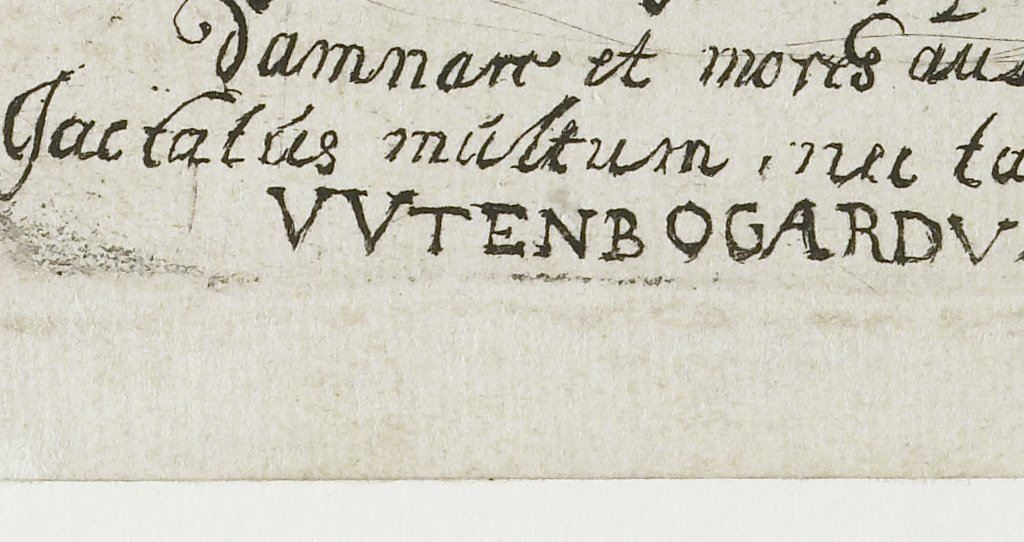 damnare et mores aus
Jactatus múltum, nec ta
VVTENBOGARDV